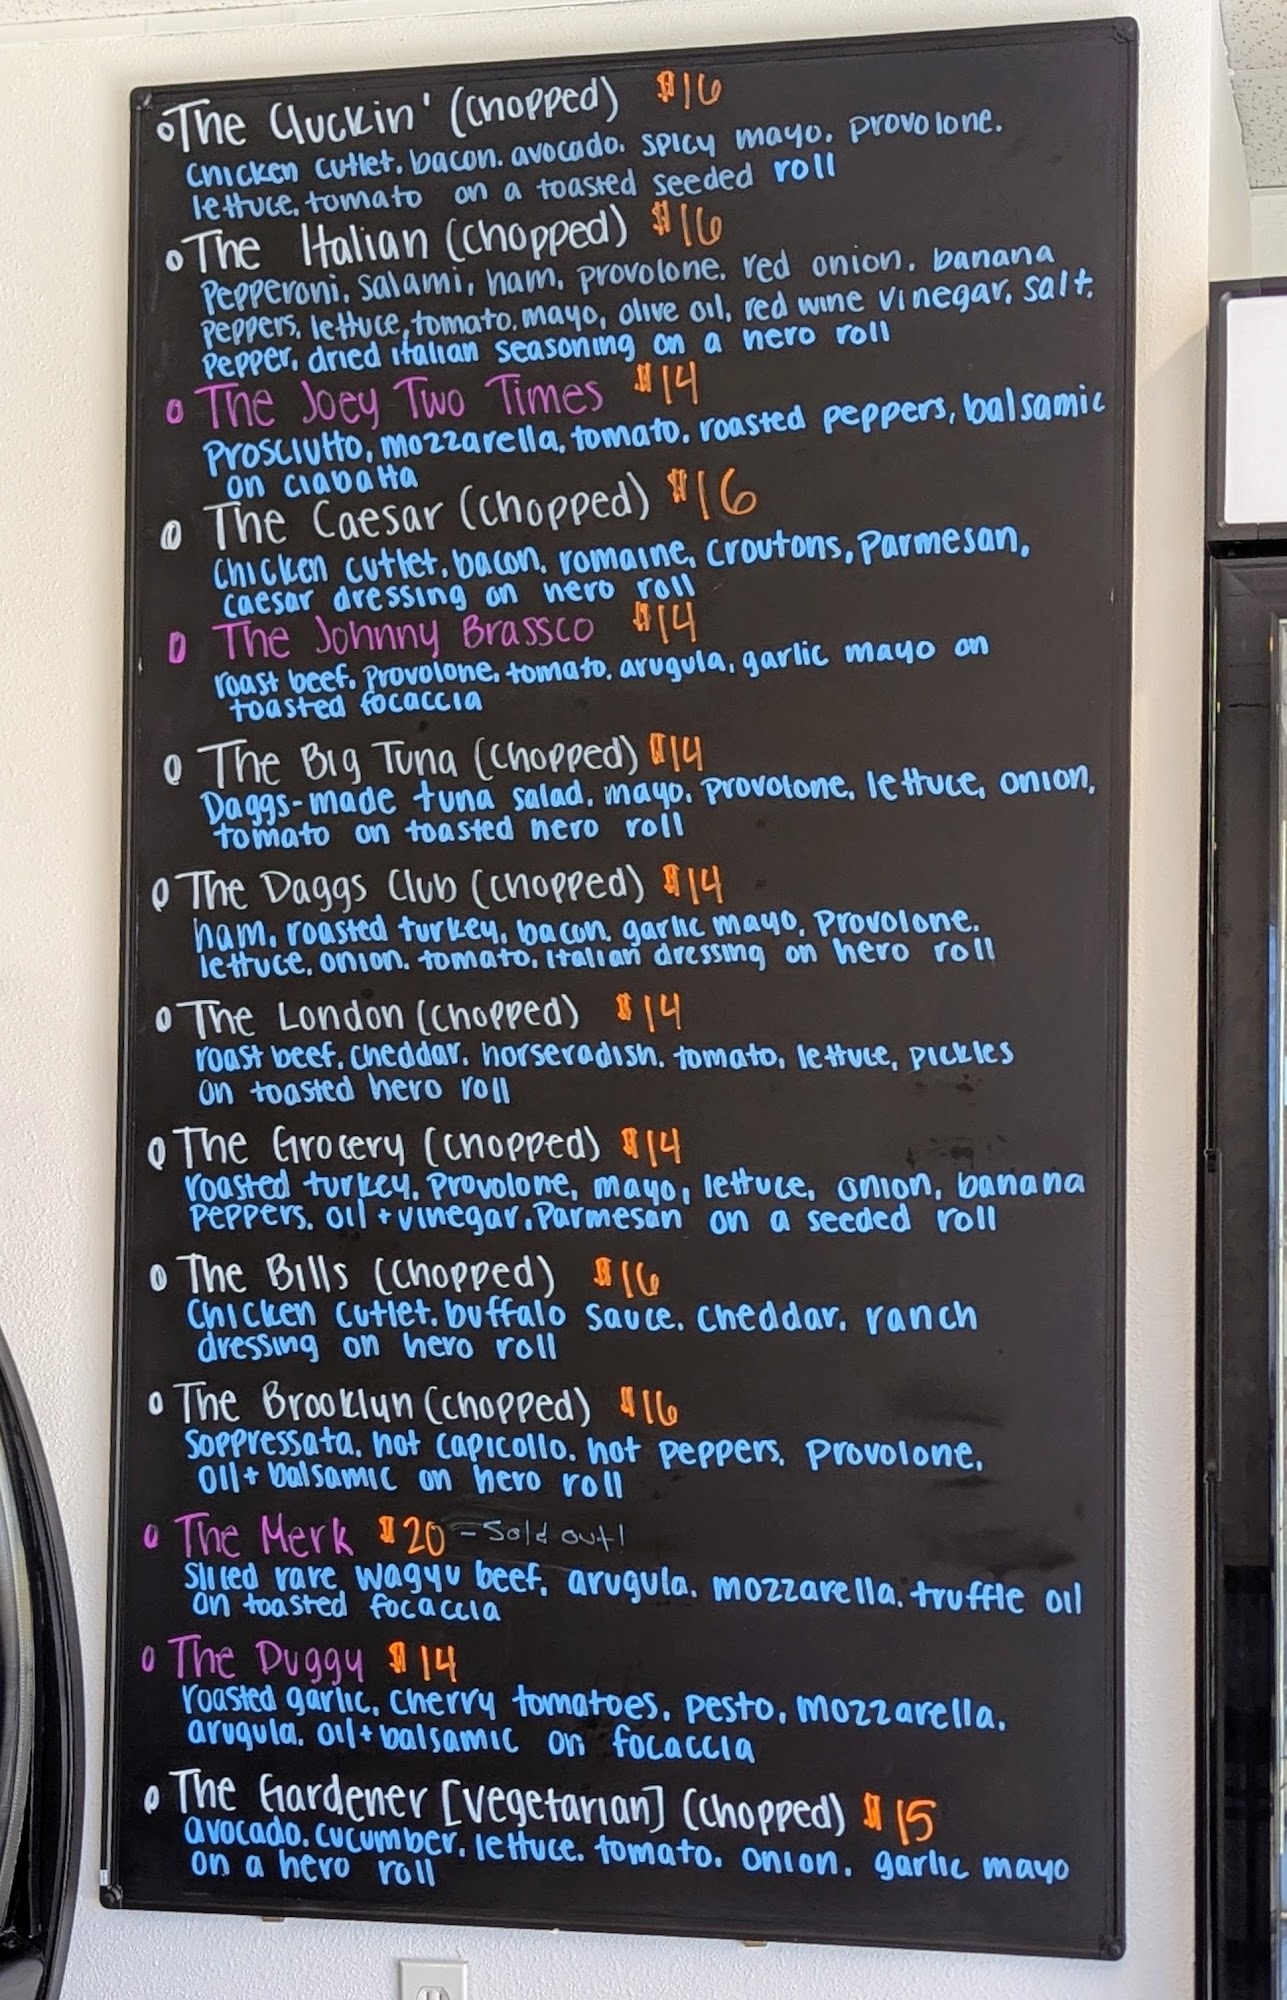 The Cluckin' (chopped) $16
Chicken cutlet, bacon, avocado, spicy mayo, provolone,
lettuce, tomato on a toasted seeded roll
The Italian (chopped) $16
Pepperoni, salami, ham, provolone, red onion, banana
peppers, lettuce, tomato, mayo, olive oil, red wine vinegar, salt,
pepper, dried italian seasoning on a hero roll
The Joey Two Times $14
Prosciutto, mozzarella, tomato, roasted peppers, balsamic
on ciabatta
The Caesar (chopped) $16
Chicken cutlet, bacon, romaine, croutons, parmesan,
caesar dressing on hero roll
The Johnny Brassco $14
roast beef, provolone, tomato, arugula, garlic mayo on
toasted focaccia
The Big Tuna (chopped) $14
Daggs-made tuna salad, mayo, provolone, lettuce, onion,
tomato on toasted hero roll
The Daggs Club (chopped) $14
ham, roasted turkey, bacon, garlic mayo, provolone,
lettuce, onion, tomato, italian dressing on hero roll
The London (chopped) $14
roast beef, cheddar, horseradish, tomato, lettuce, pickles
on toasted hero roll
The Grocery (chopped) $14
roasted turkey, provolone, mayo, lettuce, onion, banana
peppers, oil + vinegar, parmesan on a seeded roll
The Bills (chopped) $16
Chicken cutlet, buffalo sauce, cheddar, ranch
dressing on hero roll
The Brooklyn (chopped) $16
Soppressata, hot capicollo, hot peppers, provolone,
oil + balsamic on hero roll
The Merk $20 - Sold out!
Sliced rare wagyu beef, arugula, mozzarella, truffle oil
on toasted focaccia
The Duggy $14
roasted garlic, cherry tomatoes, pesto, mozzarella,
arugula, oil + balsamic on focaccia
The Gardener [vegetarian] (chopped) $15
avocado, cucumber, lettuce, tomato, onion, garlic mayo
on a hero roll